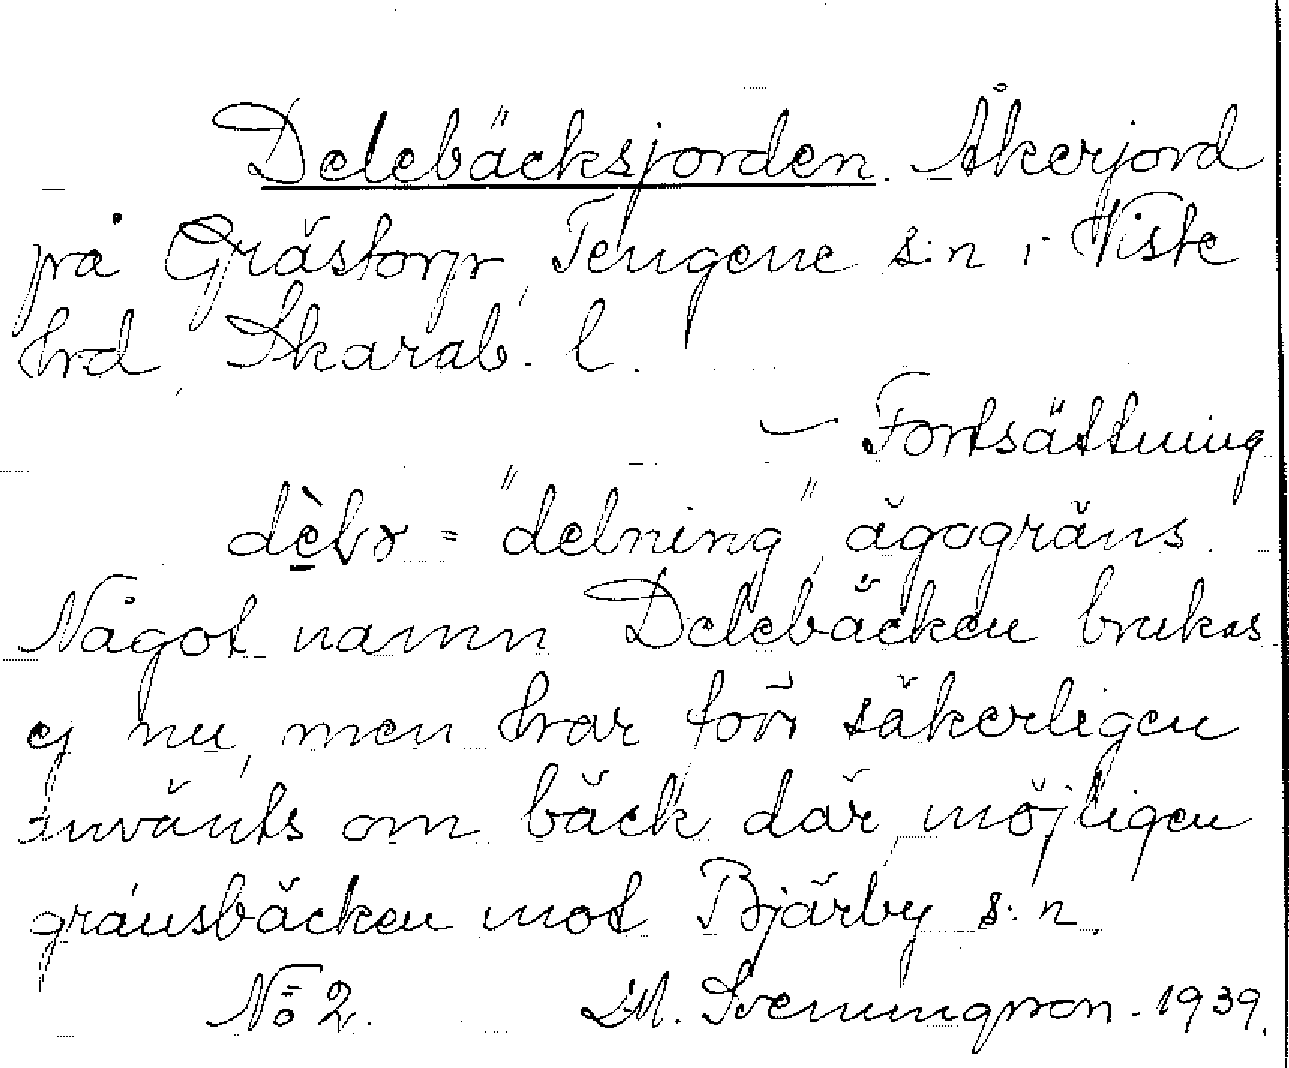 Delebäcksjorden. Åkerjord
på Grästorp, Tengene s:n i Viste
hrd, Skarab. l.
— Fortsättning
= "delning", ägogräns.
Något namn Delebäcken brukas
ej nu, men har förr säkerligen
använts om bäck där möjligen
gränsbäcken mot Bjärby s:n.
No 2. D.M. Svenningson - 1939.